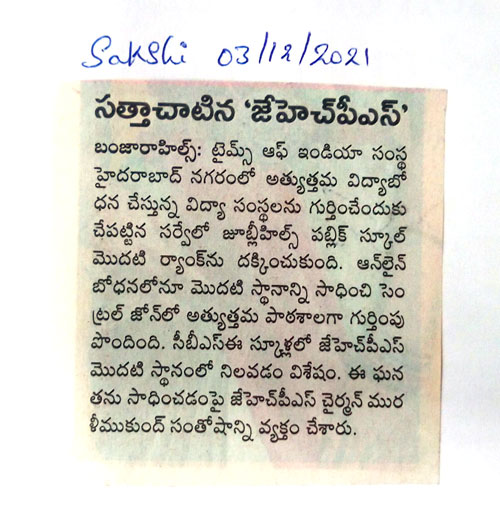 Sakshi 03/12/2021
సత్తాచాటిన ‘జేహెచ్‌పీఎస్’
బంజారాహిల్స్: టైమ్స్ ఆఫ్ ఇండియా సంస్థ
హైదరాబాద్ నగరంలో అత్యుత్తమ విద్యాబో
ధన చేస్తున్న విద్యా సంస్థలను గుర్తించేందుకు
చేపట్టిన సర్వేలో జూబ్లీహిల్స్ పబ్లిక్ స్కూల్
మొదటి ర్యాంక్‌ను దక్కించుకుంది. ఆన్‌లైన్
బోధనలోనూ మొదటి స్థానాన్ని సాధించి సెం
ట్రల్ జోన్‌లో అత్యుత్తమ పాఠశాలగా గుర్తింపు
పొందింది. సీబీఎస్ఈ స్కూళ్లలో జేహెచ్‌పీఎస్
మొదటి స్థానంలో నిలవడం విశేషం. ఈ ఘన
తను సాధించడంపై జేహెచ్‌పీఎస్ చైర్మన్ ముర
ళీముకుంద్ సంతోషాన్ని వ్యక్తం చేశారు.